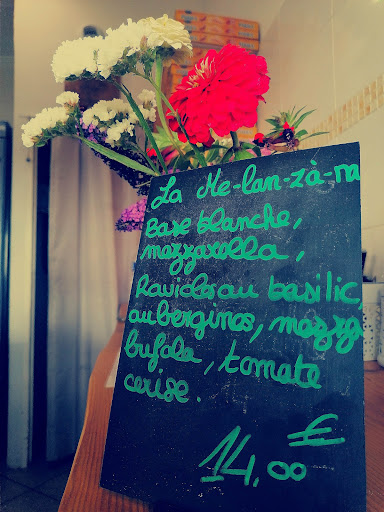 La Me-lan-zà-na
Base blanche,
mozzarella,
Ravioles au basilic,
aubergines, mozza
bufala, tomate
cerise.
14,00 €